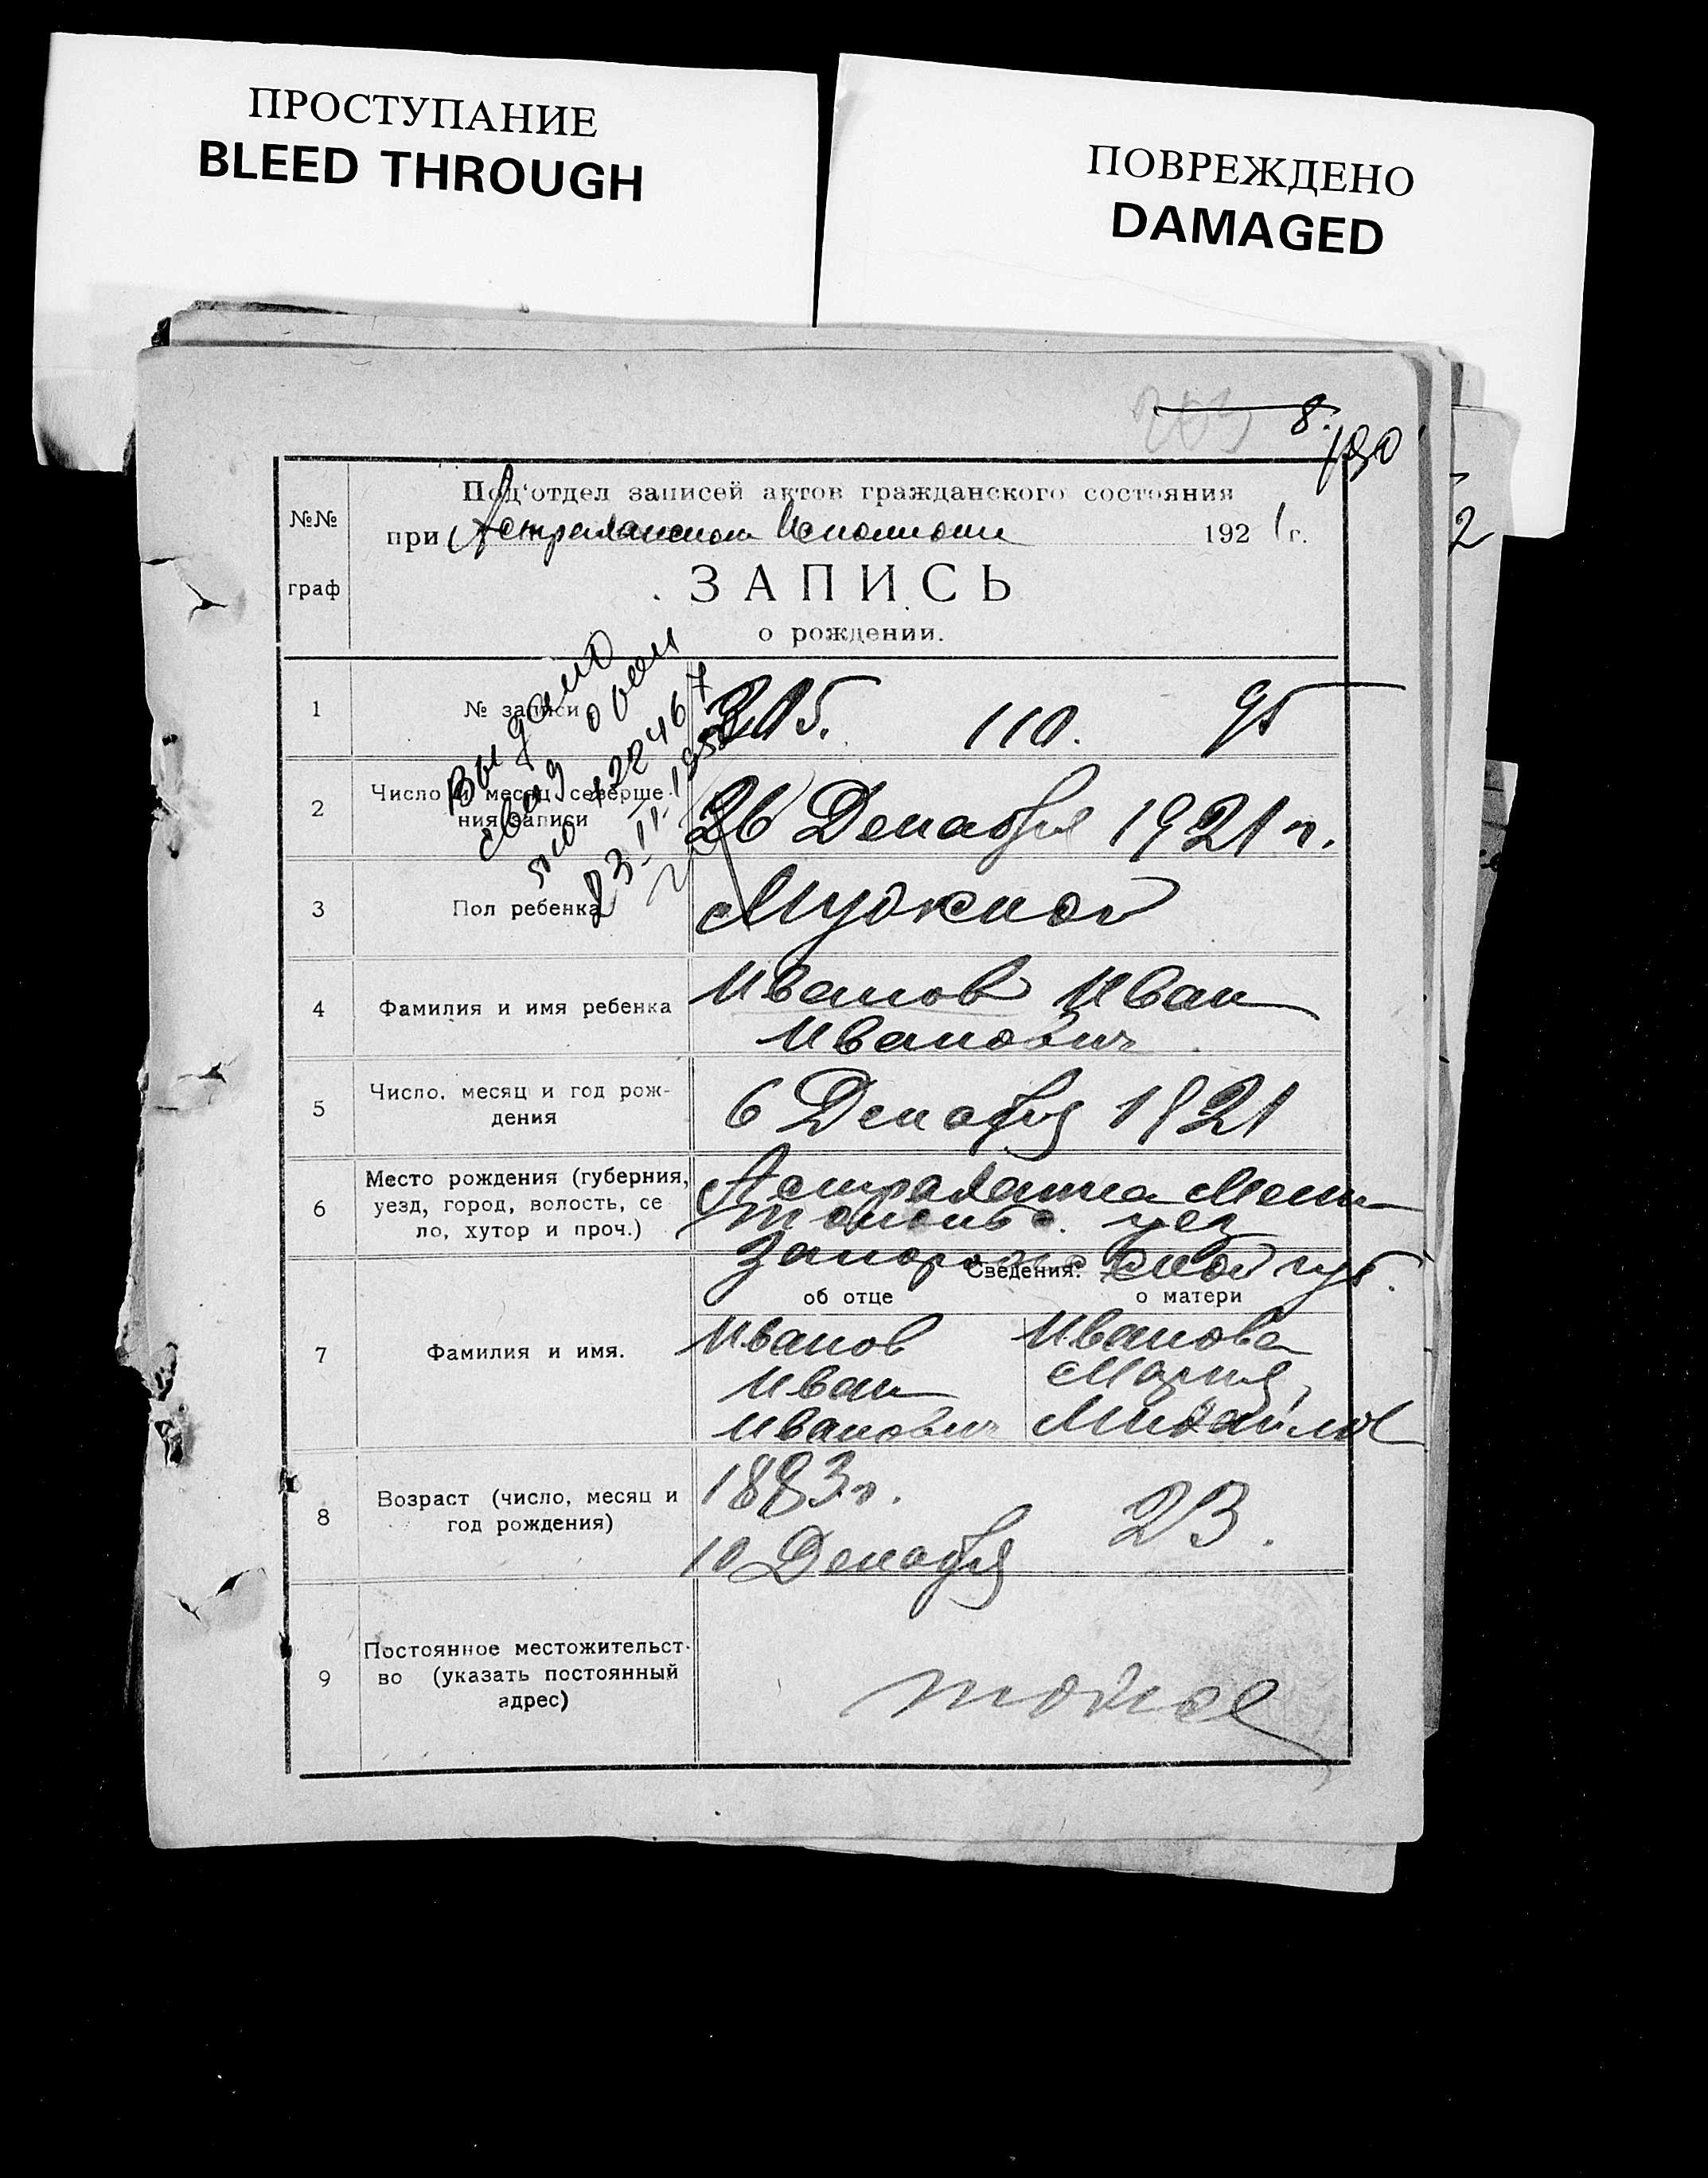 ПРОСТУПАНИЕ
BLEED THROUGH
ПОВРЕЖДЕНО
DAMAGED
203 8.
180
2
№№
граф
Под'отдел записей актов гражданского состояния
при Астраханском Исполкоме 1921 г.
ЗАПИСЬ
о рождении.
Выдано
свид овом
по 122467
23-II-195
1 № записи 205. 110. 95
2 Число и месяц соверше-
ния записи
26 Декабря 1921 г.
3 Пол ребенка Мужской
4 Фамилия и имя ребенка Иванов Иван
Иванович
5 Число, месяц и год рож-
дения
6 Декабря 1921
6 Место рождения (губерния,
уезд, город, волость, се
ло, хутор и проч.)
Астраханка Мели
топольс. уез
Запорожской губ.
Сведения:
об отце о матери
7 Фамилия и имя.
Иванов Иванова
Иван Мария
Иванович Михайлов
8 Возраст (число, месяц и
год рождения)
1883 г. 23.
10 Декабря
9 Постоянное местожительст-
во (указать постоянный
адрес)
тоже